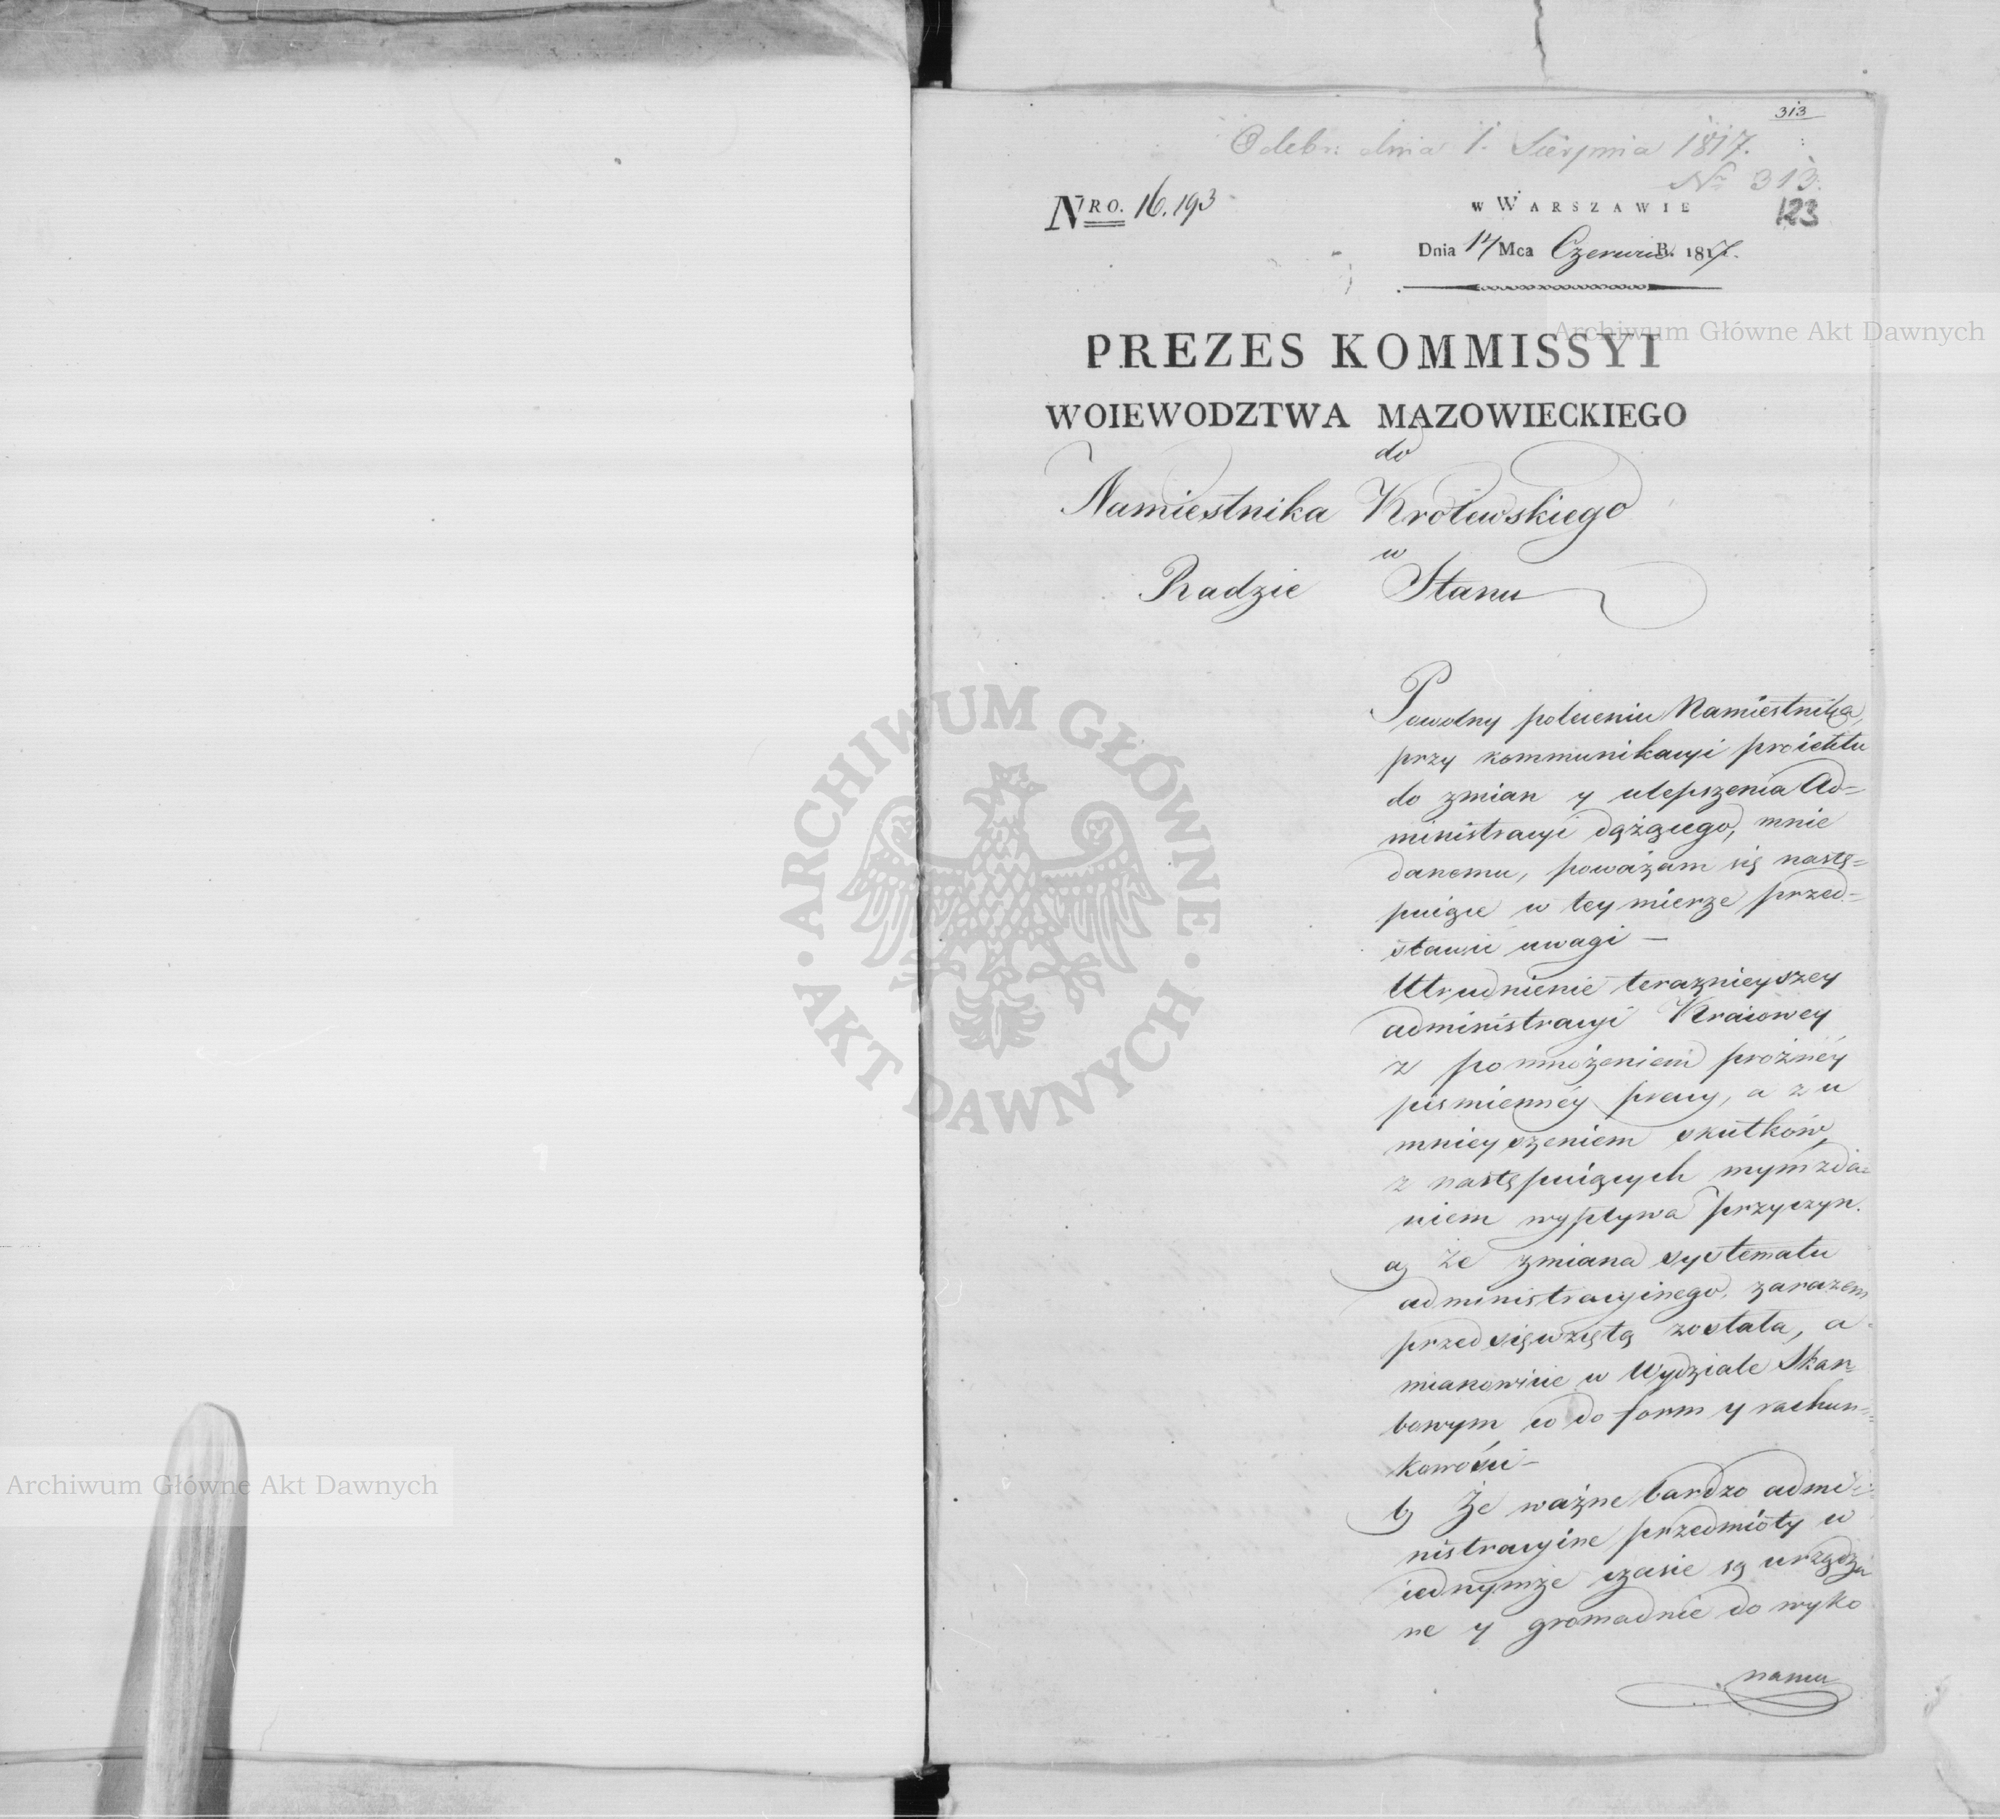 313
Odebr: dnia 1. Sierpnia 1817.
No 313.
NRO. 16.193
W WARSZAWIE
123
Dnia 14 Mca Czerwca R. 1817.
PREZES KOMMISSYI
WOIEWODZTWA MAZOWIECKIEGO
do
Namiestnika Królewskiego
w
Radzie Stanu
Powolny poleceniu Namiestnika,
przy kommunikacyi proiektu
do zmian y ulepszenia Ad=
ministracyi dążącego, mnie
danemu, poważam się nastę=
puiące w tey mierze przed=
stawić uwagi —
Utrudnienie teraznieyszey
administracyi Kraiowey
z pomnożeniem prożnéy
pismiennéy pracy, a z u
mnieyszeniem skutków,
z następuiących mym zda=
niem wypływa przyczyn.
a, że zmiana systematu
administracyinego, zarazem
przedsięwziętą została, a
mianowicie w Wydziale Skar=
bowym co do form y rachun=
kowości —
b, Że ważne bardzo admi=
nistracyine przedmioty w
iednymże czasie są urządza
ne y gromadnie do wyko
naniu
Archiwum Główne Akt Dawnych
ARCHIWUM GŁÓWNE · AKT DAWNYCH ·
Archiwum Główne Akt Dawnych